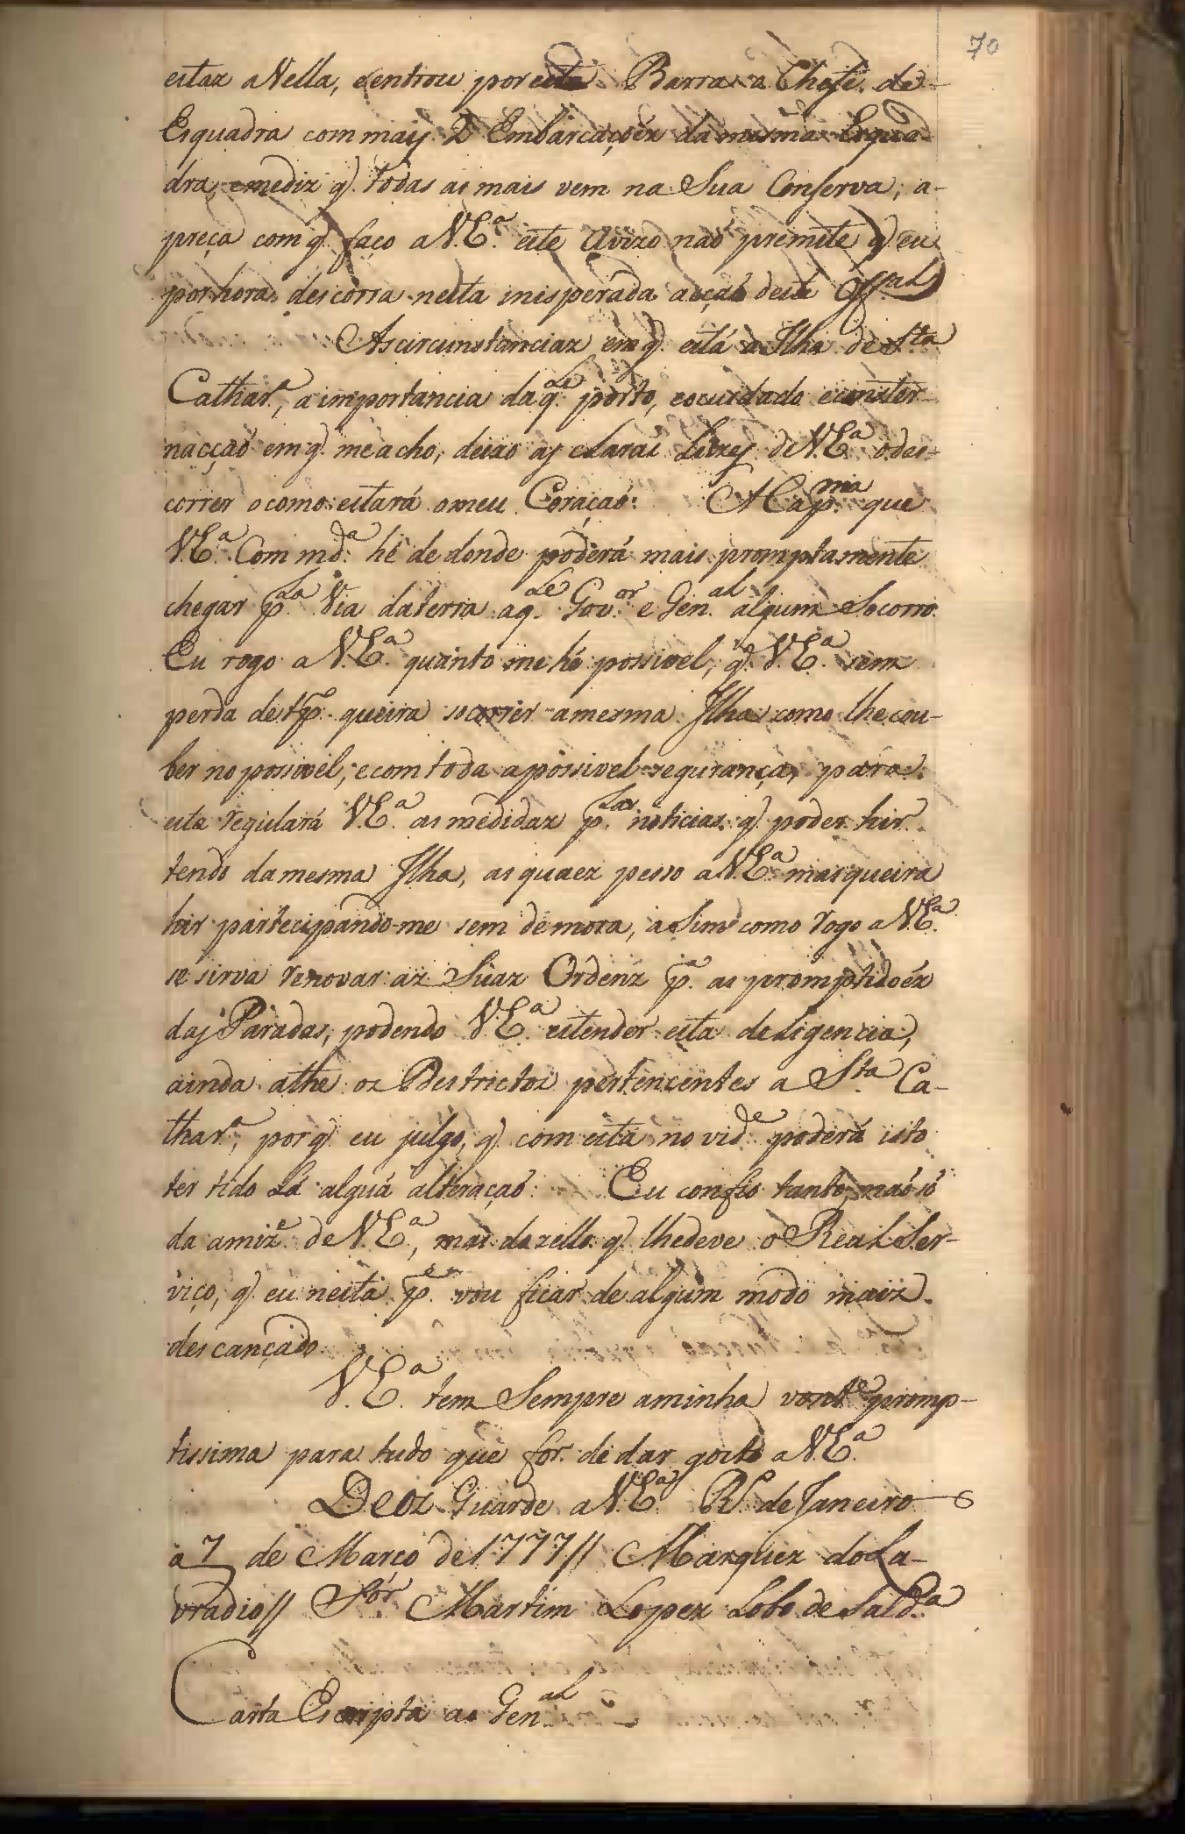 70
estar a Vella, e entrou por esta Barra o Chefe de
Esquadra com mais 2 Embarcaçoéz da mesma Esqua
dra, e me diz q̃. todas as mais vem na Sua Conserva; a-
preça com q̃. faço a V.Eª. este Avizo naõ premite q̃. eu
por hora descorra nesta inisperada acçaõ deste Off.al
As circunstanciaz em q̃. está a Ilha de S.ta
Cathar.ª, a importancia daq.le porto, e o cuidado e conster
nacçaõ em q̃. me acho, deixo as claras Luzes de V.Eª. o des-
correr o como estará o meu Coraçaõ: A Cap.nia que
V.Eª. Com md.ª hé de donde poderá mais promptamente
chegar p.la Via da terra aq.le Gov.or e Gen.al algum Socorro.
Eu rogo a V.Eª. quanto me hé possivel, q̃. V.Eª. sem
perda de tp̃. queira socorrer a mesma Ilha, como lhe cou-
ber no possivel, e com toda a possivel segurança, para
esta regulará V.Eª. as medidaz p.las noticias q̃. poder hir
tendo da mesma Ilha, as quaez pesso a V.Eª. mas queira
hir partecipando-me sem demora, a Sim como rogo a V.Eª.
se sirva renovar az Suaz Ordenz p.ª as promptidoéz
das Paradas, podendo V.Eª. estender esta deligencia,
ainda athe oz Destrictoz pertencentes a S.ta Ca-
thar.ª, por q̃. eu julgo, q̃. com esta novid.e poderá isto
ter tido Lá alguá alteraçaõ: Eu confio tanto, naõ só
da amiz.e de V.Eª., mas do zello q̃. lhe deve o Real Ser-
viço, q̃. eu nesta p.e vou ficar de algum modo maiz
descançado.
V.Eª. tem Sempre a minha vont.e promp-
tissima para tudo que for de dar gosto a V.Eª.
Deoz Guarde a V.Eª. R.º de Janeiro
a 7 de Março de 1777// Marquez do La-
vradio// S.ór Martim Lopez Lobo de Sald.ª
Carta Escripta ao Gen.al